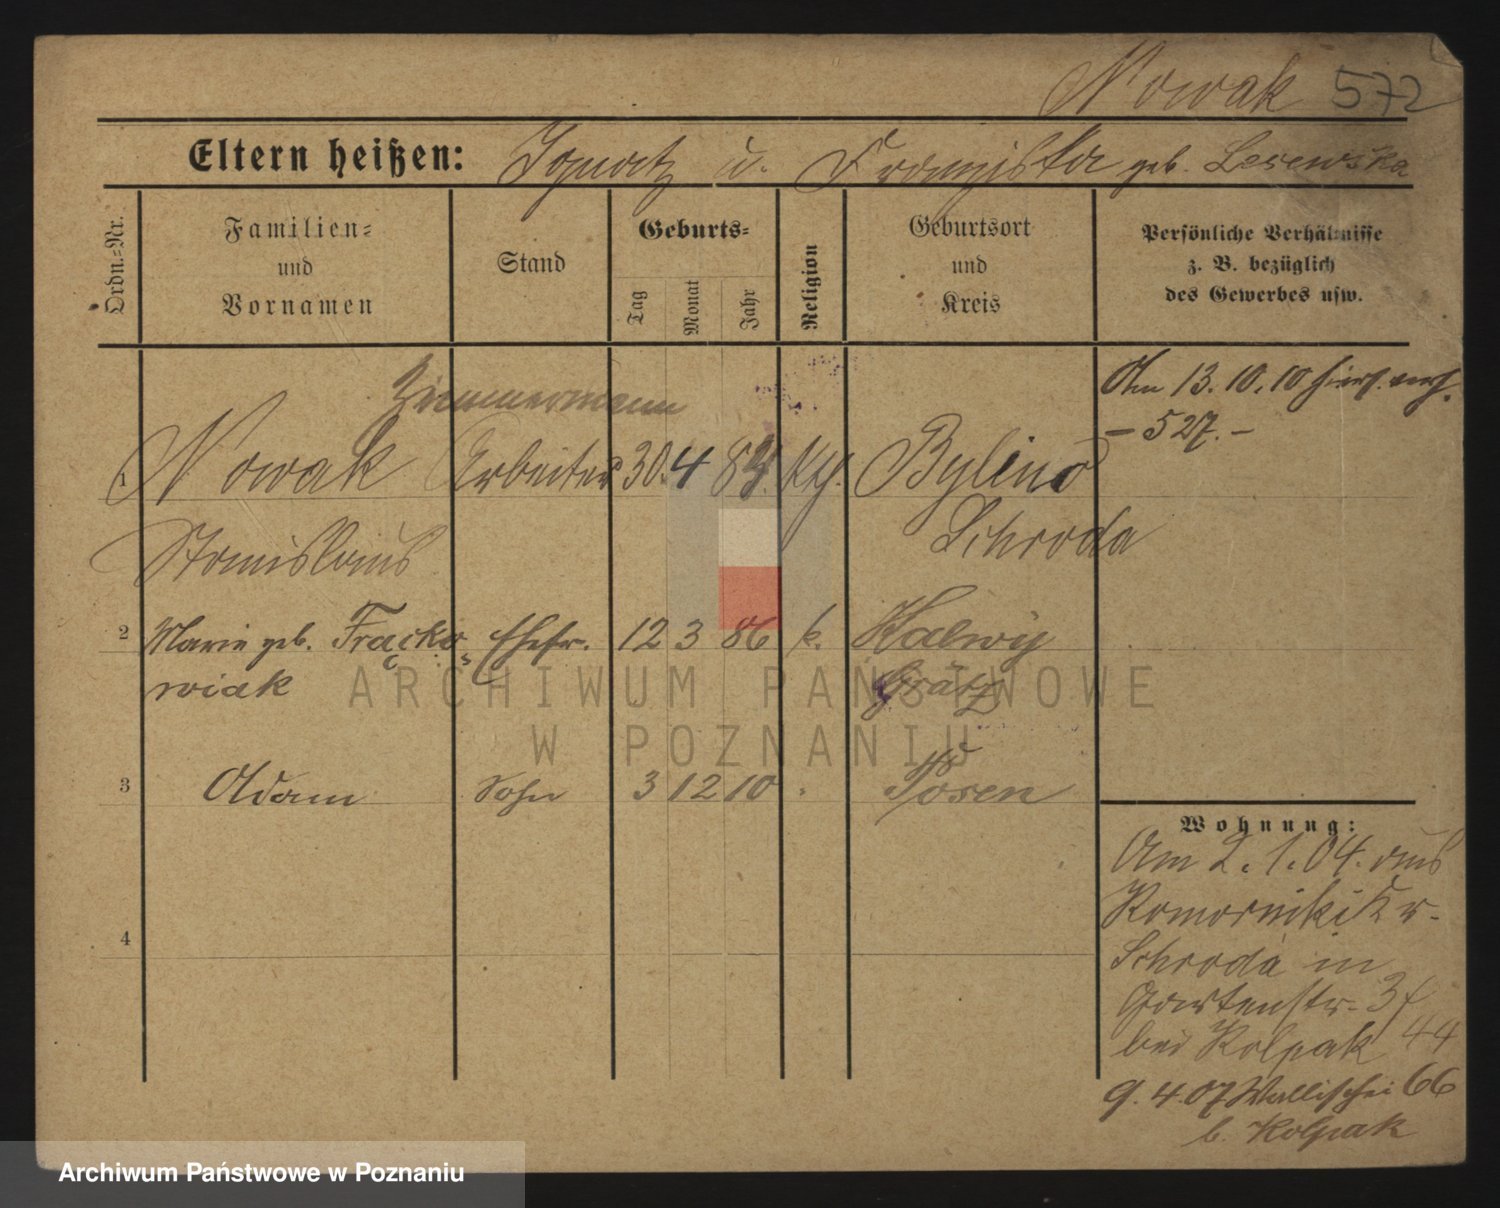 Nowak 572
Eltern heißen: Ignatz u. Franziska geb. Lesewska
Ordn.-Nr.
Familien-
und
Vornamen
Stand
Geburts-
Tag
Monat
Jahr
Religion
Geburtsort
und
Kreis
Persönliche Verhältnisse
z. B. bezüglich
des Gewerbes usw.
Zimmermann
Am 13.10.10 hiers. verh.
- 527. -
1 Nowak Arbeiter 30. 4 83. kth. Bylin
Stanislaus Schroda
2 Marie geb. Fracko- Ehefr. 12 3 86 k.
wiak Grätz
3 Adam Sohn 3 12 10 Posen
4
Wohnung:
Am 2.1.04. aus
Komorniki Kr.
Schroda in
Gartenstr. 3f
bei Kolpak 44
9.4.07 Wallischei 66
b. Kolpak
ARCHIWUM PAŃSTWOWE
W POZNANIU
Archiwum Państwowe w Poznaniu